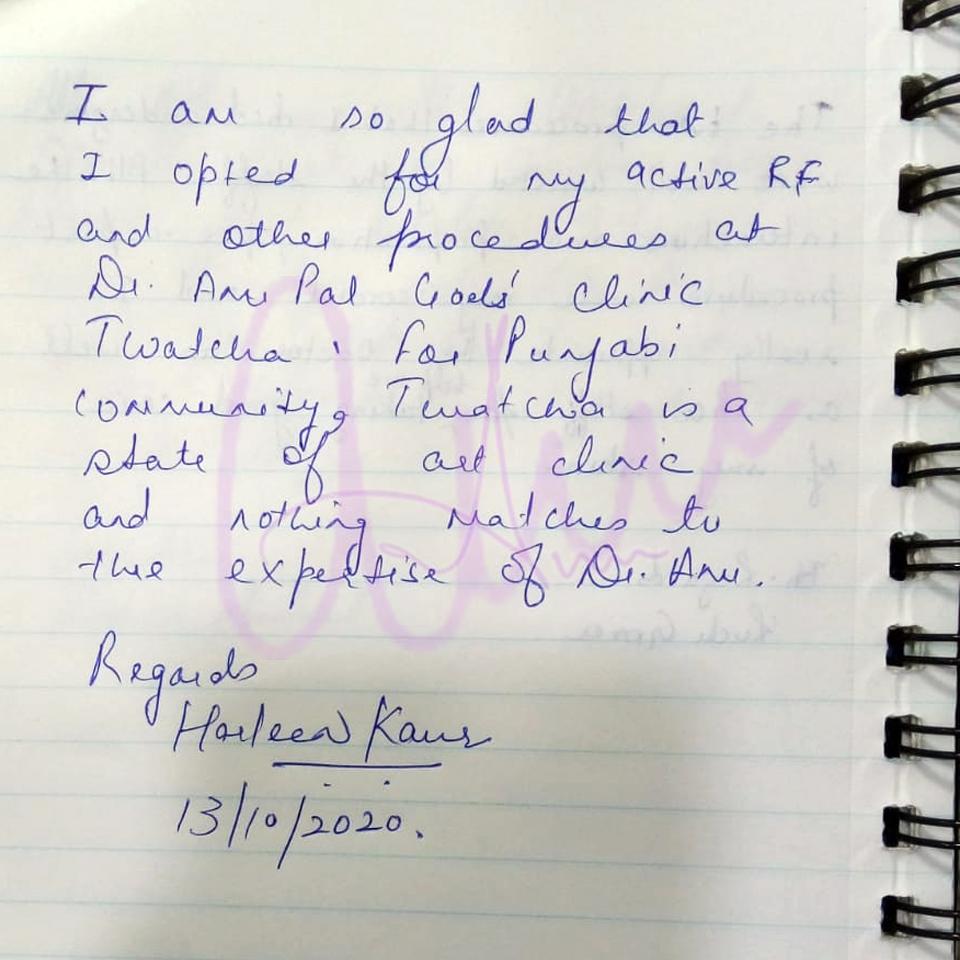 I am so glad that
I opted for my active RF
and other procedures at
Dr. Anu Pal Goels' clinic
Twatcha. For Punjabi
community, Twatcha is a
state of art clinic
and nothing matches to
the expertise of Dr. Anu.
Regards
Harleen Kaur
13/10/2020.